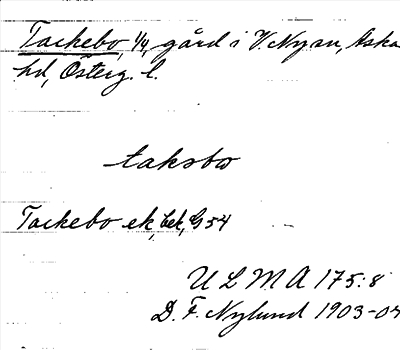 Tackebo, 1/4, gård i V. Nysn, Aska
hd, Österg. l.
taksbo
Tackebo ek, bek, G 54
U L M A 175:8
D. F. Nylund 1903-04